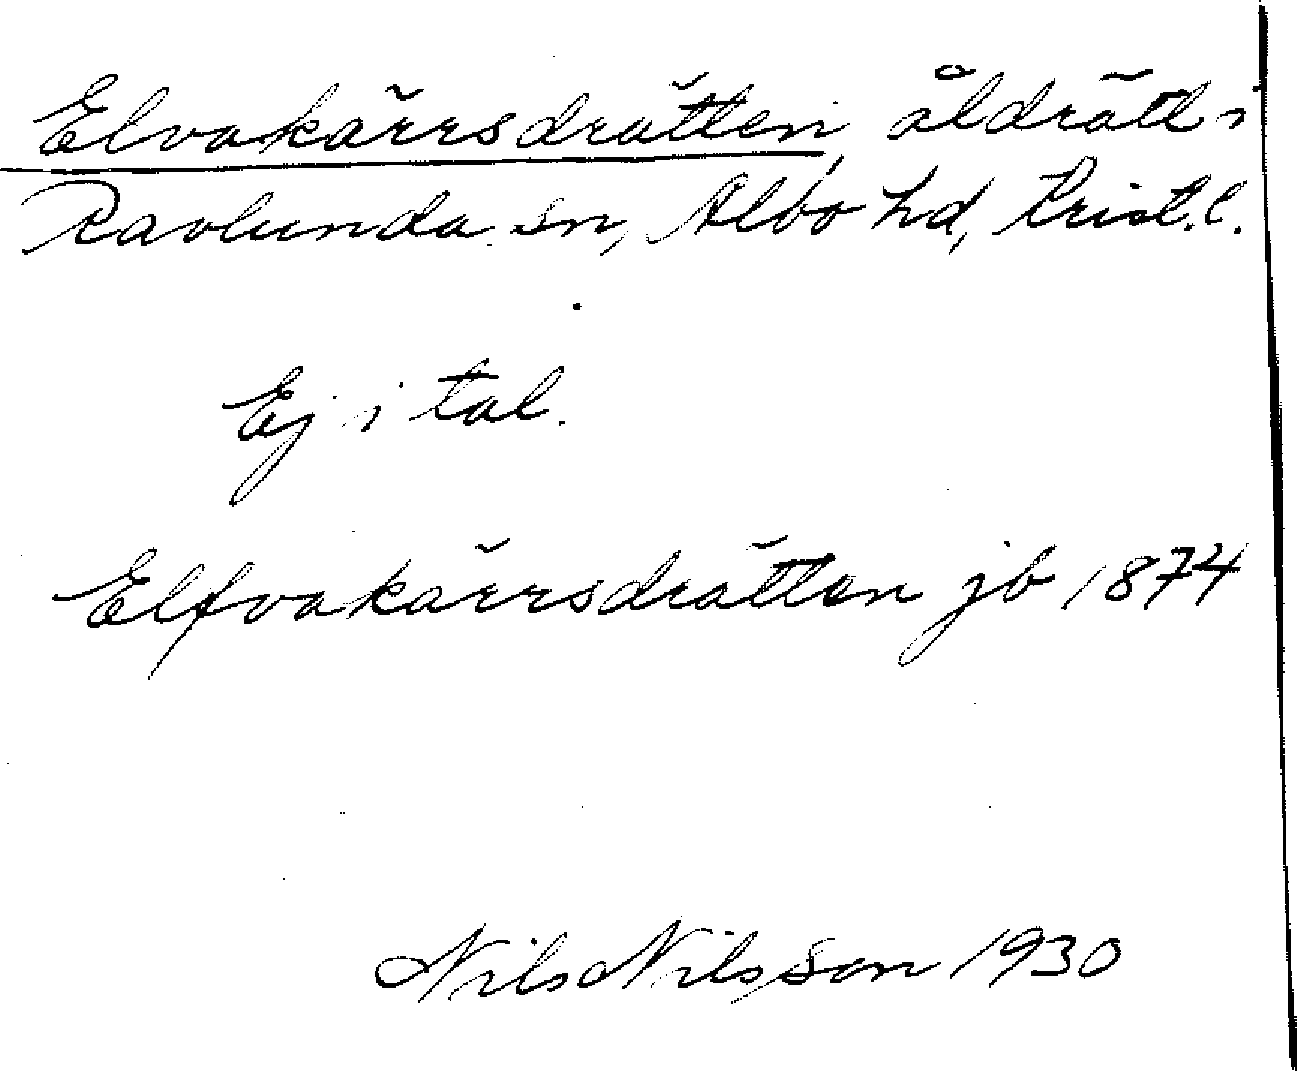 Elvakärrsdrätten, åldrätt i
Ravlunda sn, Albo hd, Krist.l.
Ej i tal.
Elfvakärrsdrätten jb 1874
Nils Nilsson 1930